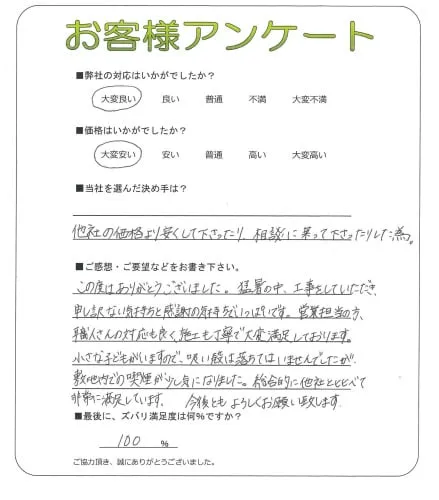 お客様アンケート
■弊社の対応はいかがでしたか?
大変良い 良い 普通 不満 大変不満
■価格はいかがでしたか?
大変安い 安い 普通 高い 大変高い
■当社を選んだ決め手は?
他社の価格より安くして下さったり、相談に乗って下さったりした為。
■ご感想・ご要望などをお書き下さい。
この度はありがとうございました。猛暑の中、工事をしていただき、
申し訳ない気持ちと感謝の気持ちでいっぱいです。営業担当の方、
職人さんの対応も良く、施工も丁寧で大変満足しております。
小さな子どもがいますので、吸い殻は落ちてはいませんでしたが
敷地内での喫煙が少し気になりました。総合的に他社とくらべて
非常に満足しています。 今後ともよろしくお願い致します。
■最後に、ズバリ満足度は何%ですか?
100 %
ご協力頂き、誠にありがとうございました。